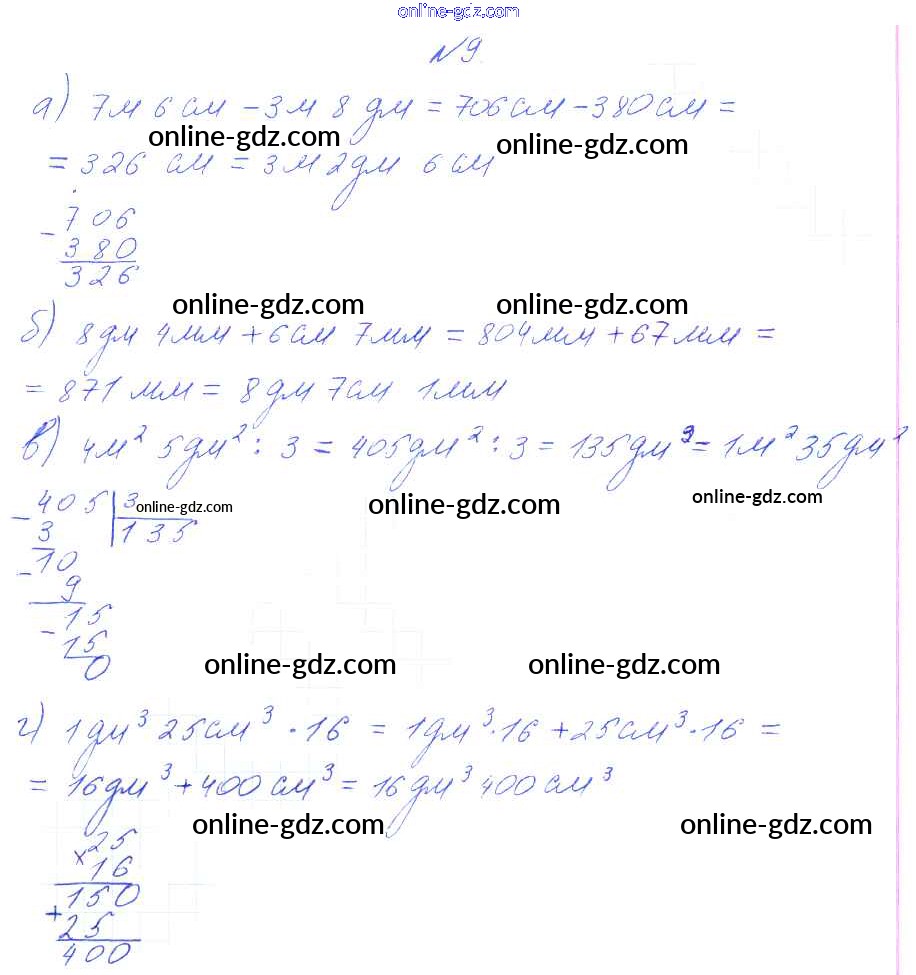 online-gdz.com
№9.
а) 7м 6см - 3м 8дм = 706см - 380см =
online-gdz.com online-gdz.com
= 326 см = 3м 2дм 6см
- 706
380
326
online-gdz.com online-gdz.com
б) 8дм 4мм + 6см 7мм = 804мм + 67мм =
= 871мм = 8дм 7см 1мм
в) 4м² 5дм² : 3 = 405дм² : 3 = 135дм² = 1м² 35дм²
- 405 | 3 online-gdz.com online-gdz.com online-gdz.com
3 135
- 10
9
- 15
15
0
online-gdz.com online-gdz.com
г) 1дм³ 25см³ · 16 = 1дм³ · 16 + 25см³ · 16 =
= 16дм³ + 400см³ = 16дм³ 400см³
online-gdz.com online-gdz.com
× 25
16
150
+ 25
400